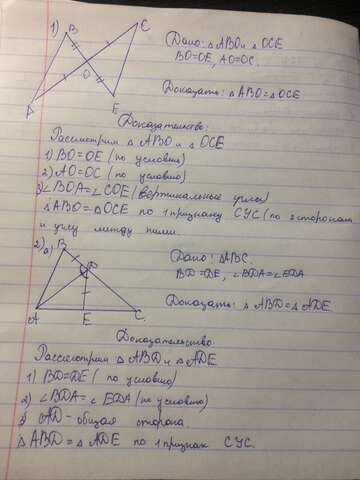 1) B C
Дано: △ABO и △OCE
BO=OE, AO=OC.
O
Доказать: △ABO=△OCE
A E
Доказательство:
Рассмотрим △ABO и △OCE
1) BO=OE (по условию)
2) AO=OC (по условию)
3) ∠BOA=∠COE (вертикальные углы)
△ABO=△OCE по 1 признаку СУС (по 2 сторонам
и углу между ними.
2) а) B
D
Дано: △ABC.
BD=DE, ∠BDA=∠EDA
Доказать: △ABD=△ADE
A E C.
Доказательство:
Рассмотрим △ABD и △ADE
1) BD=DE (по условию)
2) ∠BDA=∠EDA (по условию)
3) AD - общая сторона.
△ABD=△ADE по 1 признак СУС.